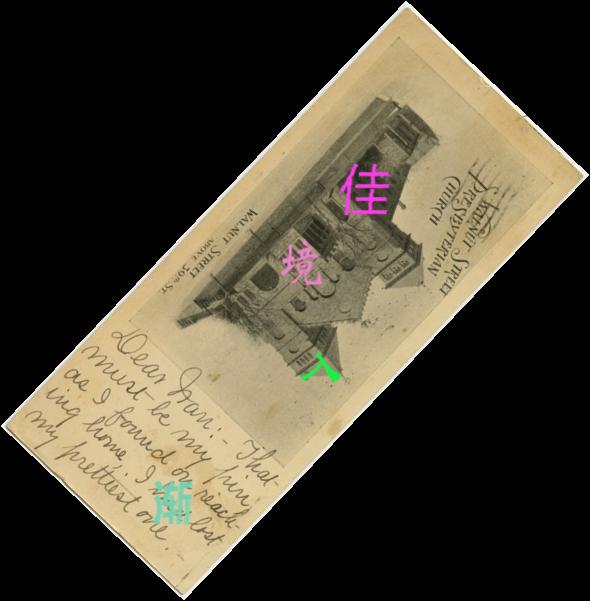 WALNUT STREET
PRESBYTERIAN
CHURCH
WALNUT STREET
ABOVE 39th ST.
Dear Nan:- That
must be my pin,
as I found on reach-
ing home, I lost
my prettiest one.-
佳
境
入
渐